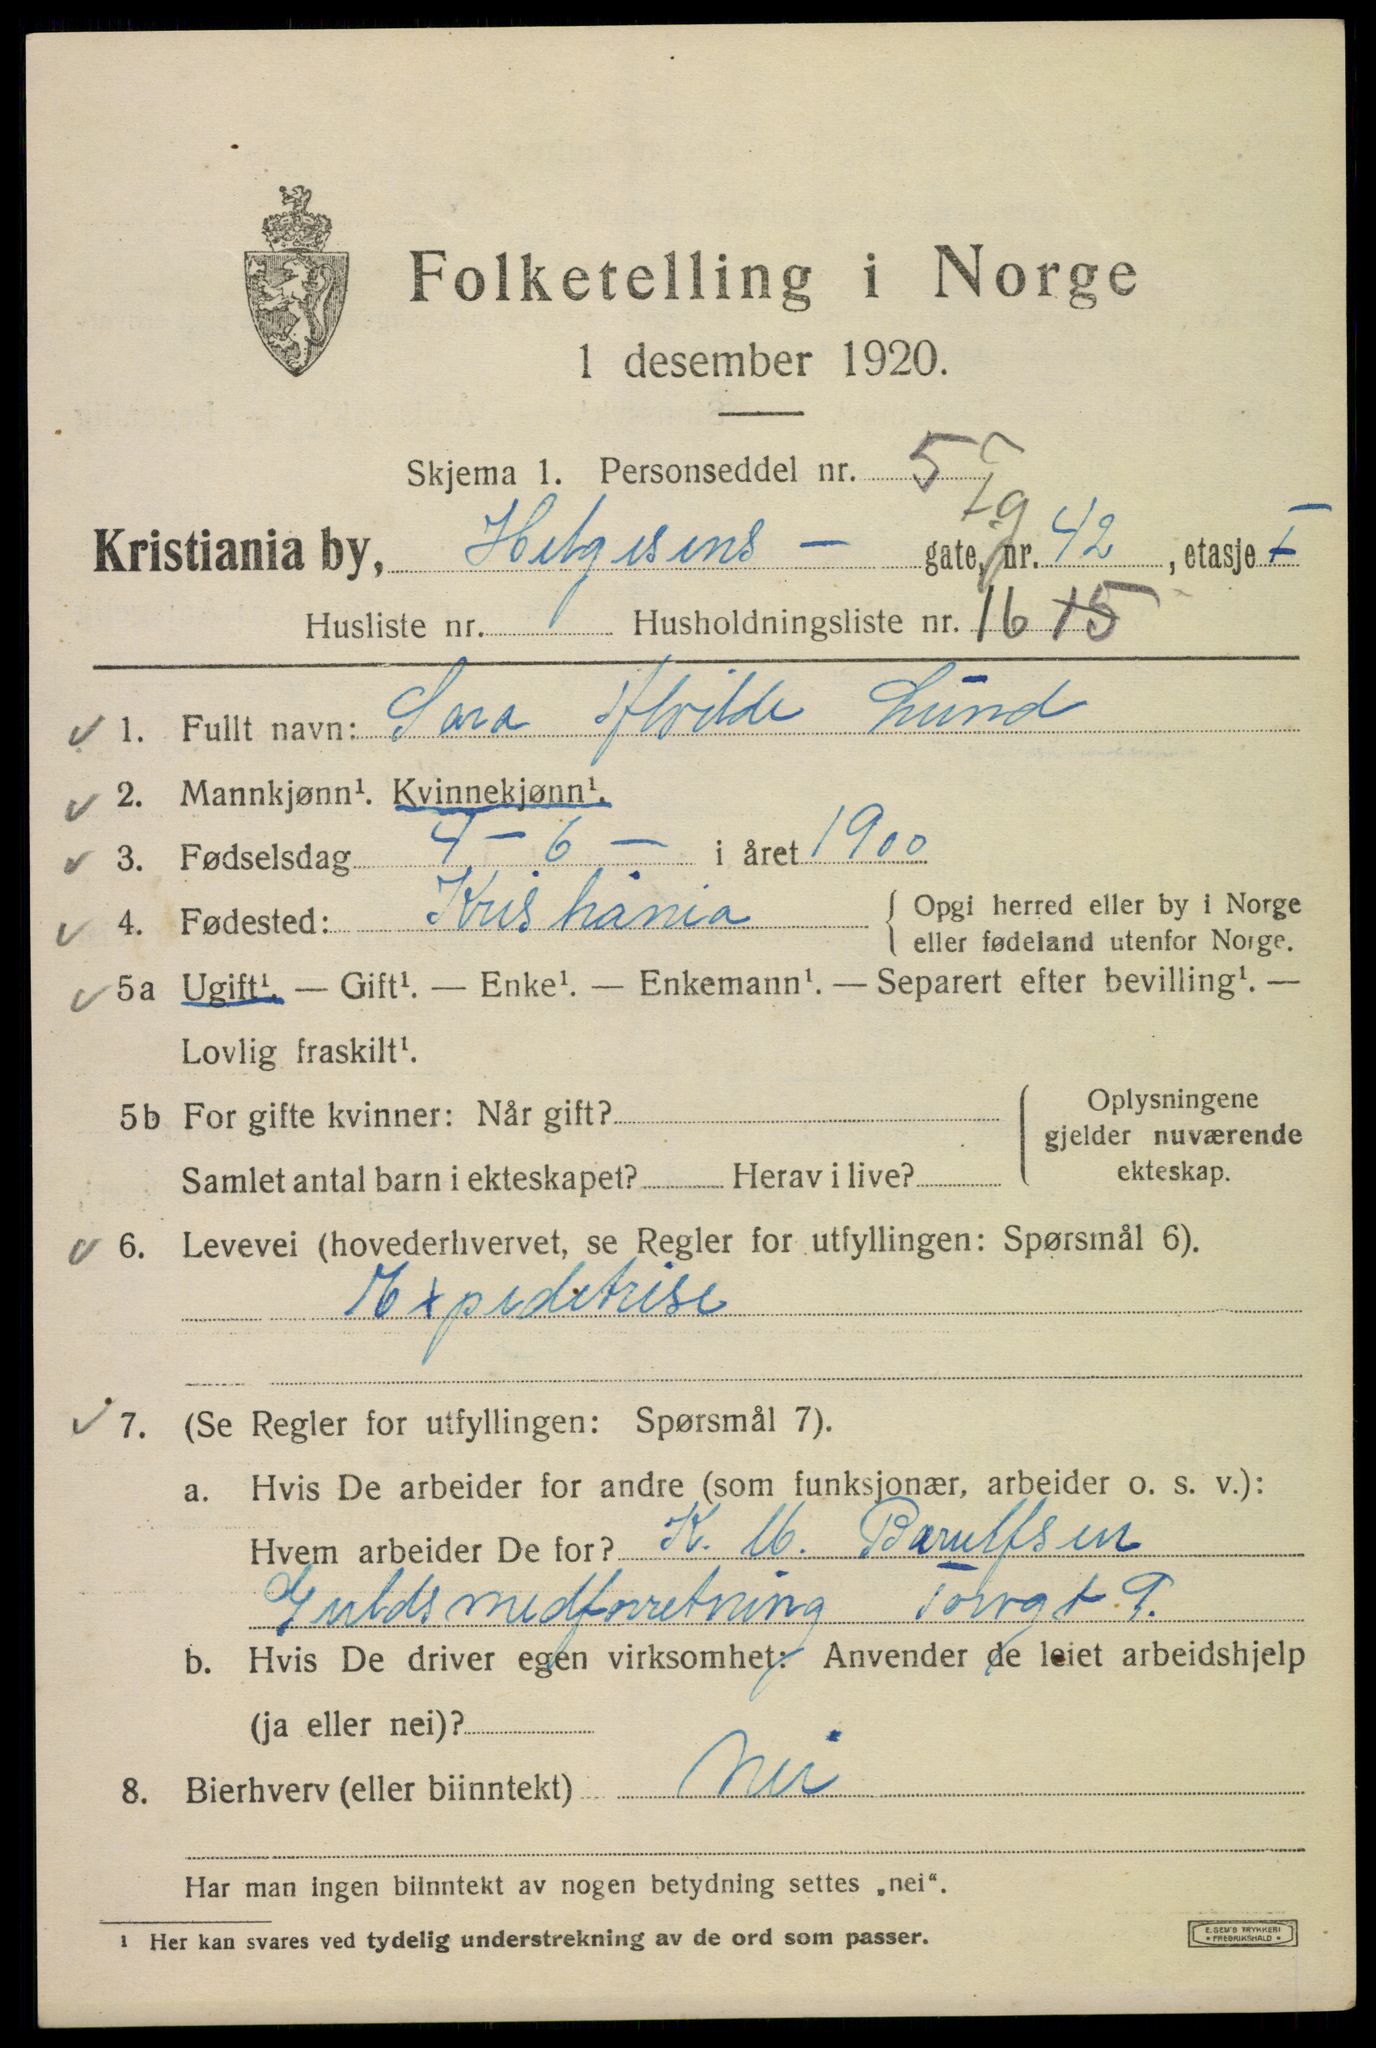 Folketelling i Norge
1 desember 1920.
Skjema 1. Personseddel nr. 5
Kristiania by, Helgesens - gate, nr. 42, etasje I
Husliste nr. Husholdningsliste nr. 16 15
1. Fullt navn: Sara Alvilde Lund
2. Mannkjønn¹. Kvinnekjønn¹.
3. Fødselsdag 4 - 6 - i året 1900
4. Fødested: Kristiania { Opgi herred eller by i Norge
eller fødeland utenfor Norge.
5a Ugift¹. — Gift¹. — Enke¹. — Enkemann¹. — Separert efter bevilling¹. —
Lovlig fraskilt¹.
5b For gifte kvinner: Når gift?
Samlet antal barn i ekteskapet? Herav i live?
Oplysningene
gjelder nuværende
ekteskap.
6. Levevei (hovederhvervet, se Regler for utfyllingen: Spørsmål 6).
Expeditrise
7. (Se Regler for utfyllingen: Spørsmål 7).
a. Hvis De arbeider for andre (som funksjonær, arbeider o. s. v.):
Hvem arbeider De for? K. M. Barulfsen
Guldsmedforretning Torvgt
b. Hvis De driver egen virksomhet: Anvender de leiet arbeidshjelp
(ja eller nei)?
8. Bierhverv (eller biinntekt) Nei
Har man ingen biinntekt av nogen betydning settes „nei“.
¹ Her kan svares ved tydelig understrekning av de ord som passer.
E. SEM'S TRYKKERI
• FREDRIKSHALD •